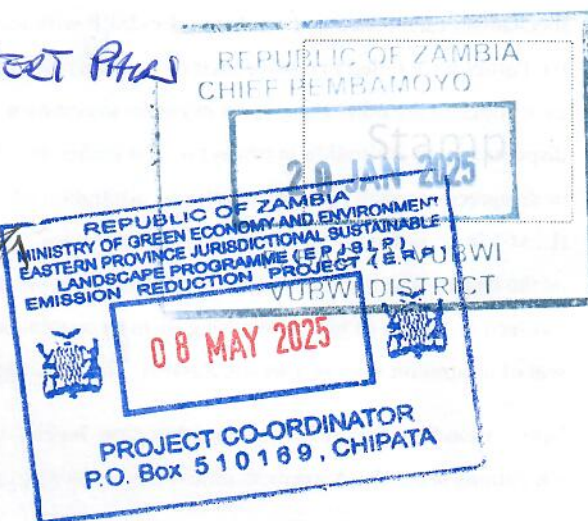 REPUBLIC OF ZAMBIA
CHIEF PEMBAMOYO
Stamp
20 JAN 2025
VUBWI
VUBWI DISTRICT
REPUBLIC OF ZAMBIA
MINISTRY OF GREEN ECONOMY AND ENVIRONMENT
EASTERN PROVINCE JURISDICTIONAL SUSTAINABLE
LANDSCAPE PROGRAMME (EPJSLP)
EMISSION REDUCTION PROJECT (ERP)
08 MAY 2025
PROJECT CO-ORDINATOR
P.O. Box 510169, CHIPATA